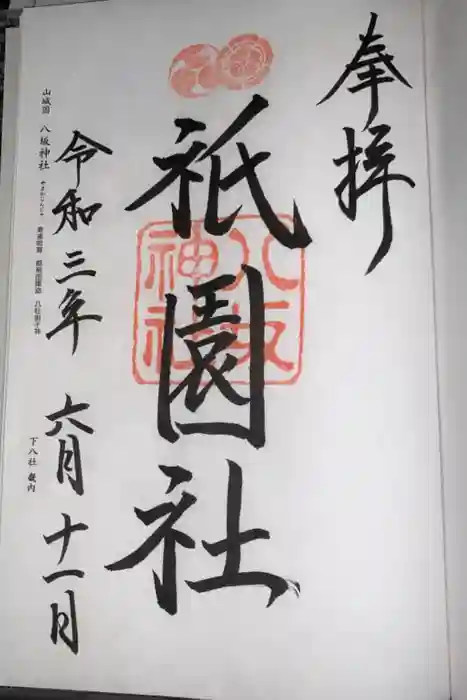 奉拝
八坂神社
祇園社
令和三年 六月十一日
山城国 八坂神社
下八社 畿内